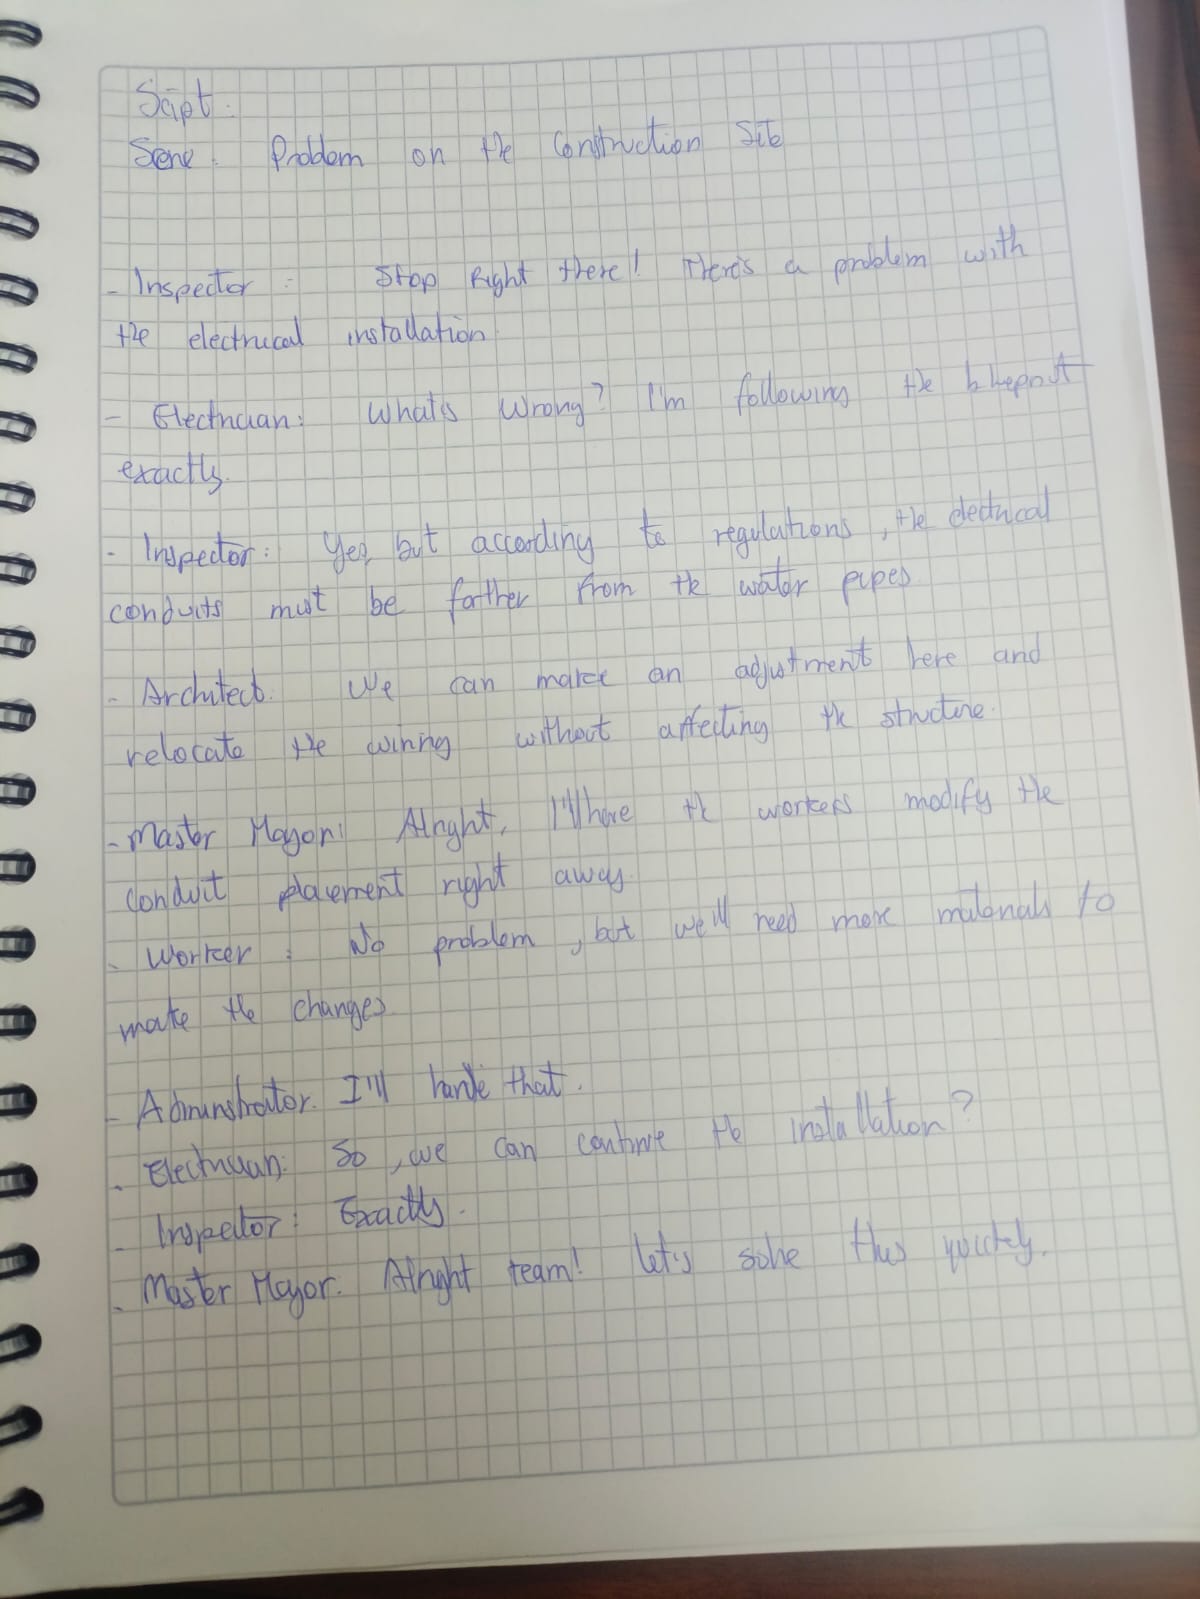 Script:
Scene: Problem on the Construction Site
- Inspector: Stop Right there! There's a problem with
the electrical installation
- Electrician: What's Wrong? I'm following the blueprint
exactly.
- Inspector: Yes, but according to regulations, the electrical
conduits must be farther from the water pipes
- Architect. We can make an adjustment here and
relocate the wiring without affecting the structure.
- Master Mayor: Alright, I'll have the workers modify the
conduit placement right away.
- Worker: No problem, but we'll need more materials to
make the changes
- Administrator. I'll handle that.
- Electrician: So, we can continue the installation?
- Inspector: Exactly.
- Master Mayor. Alright team! Let's solve this quickly.